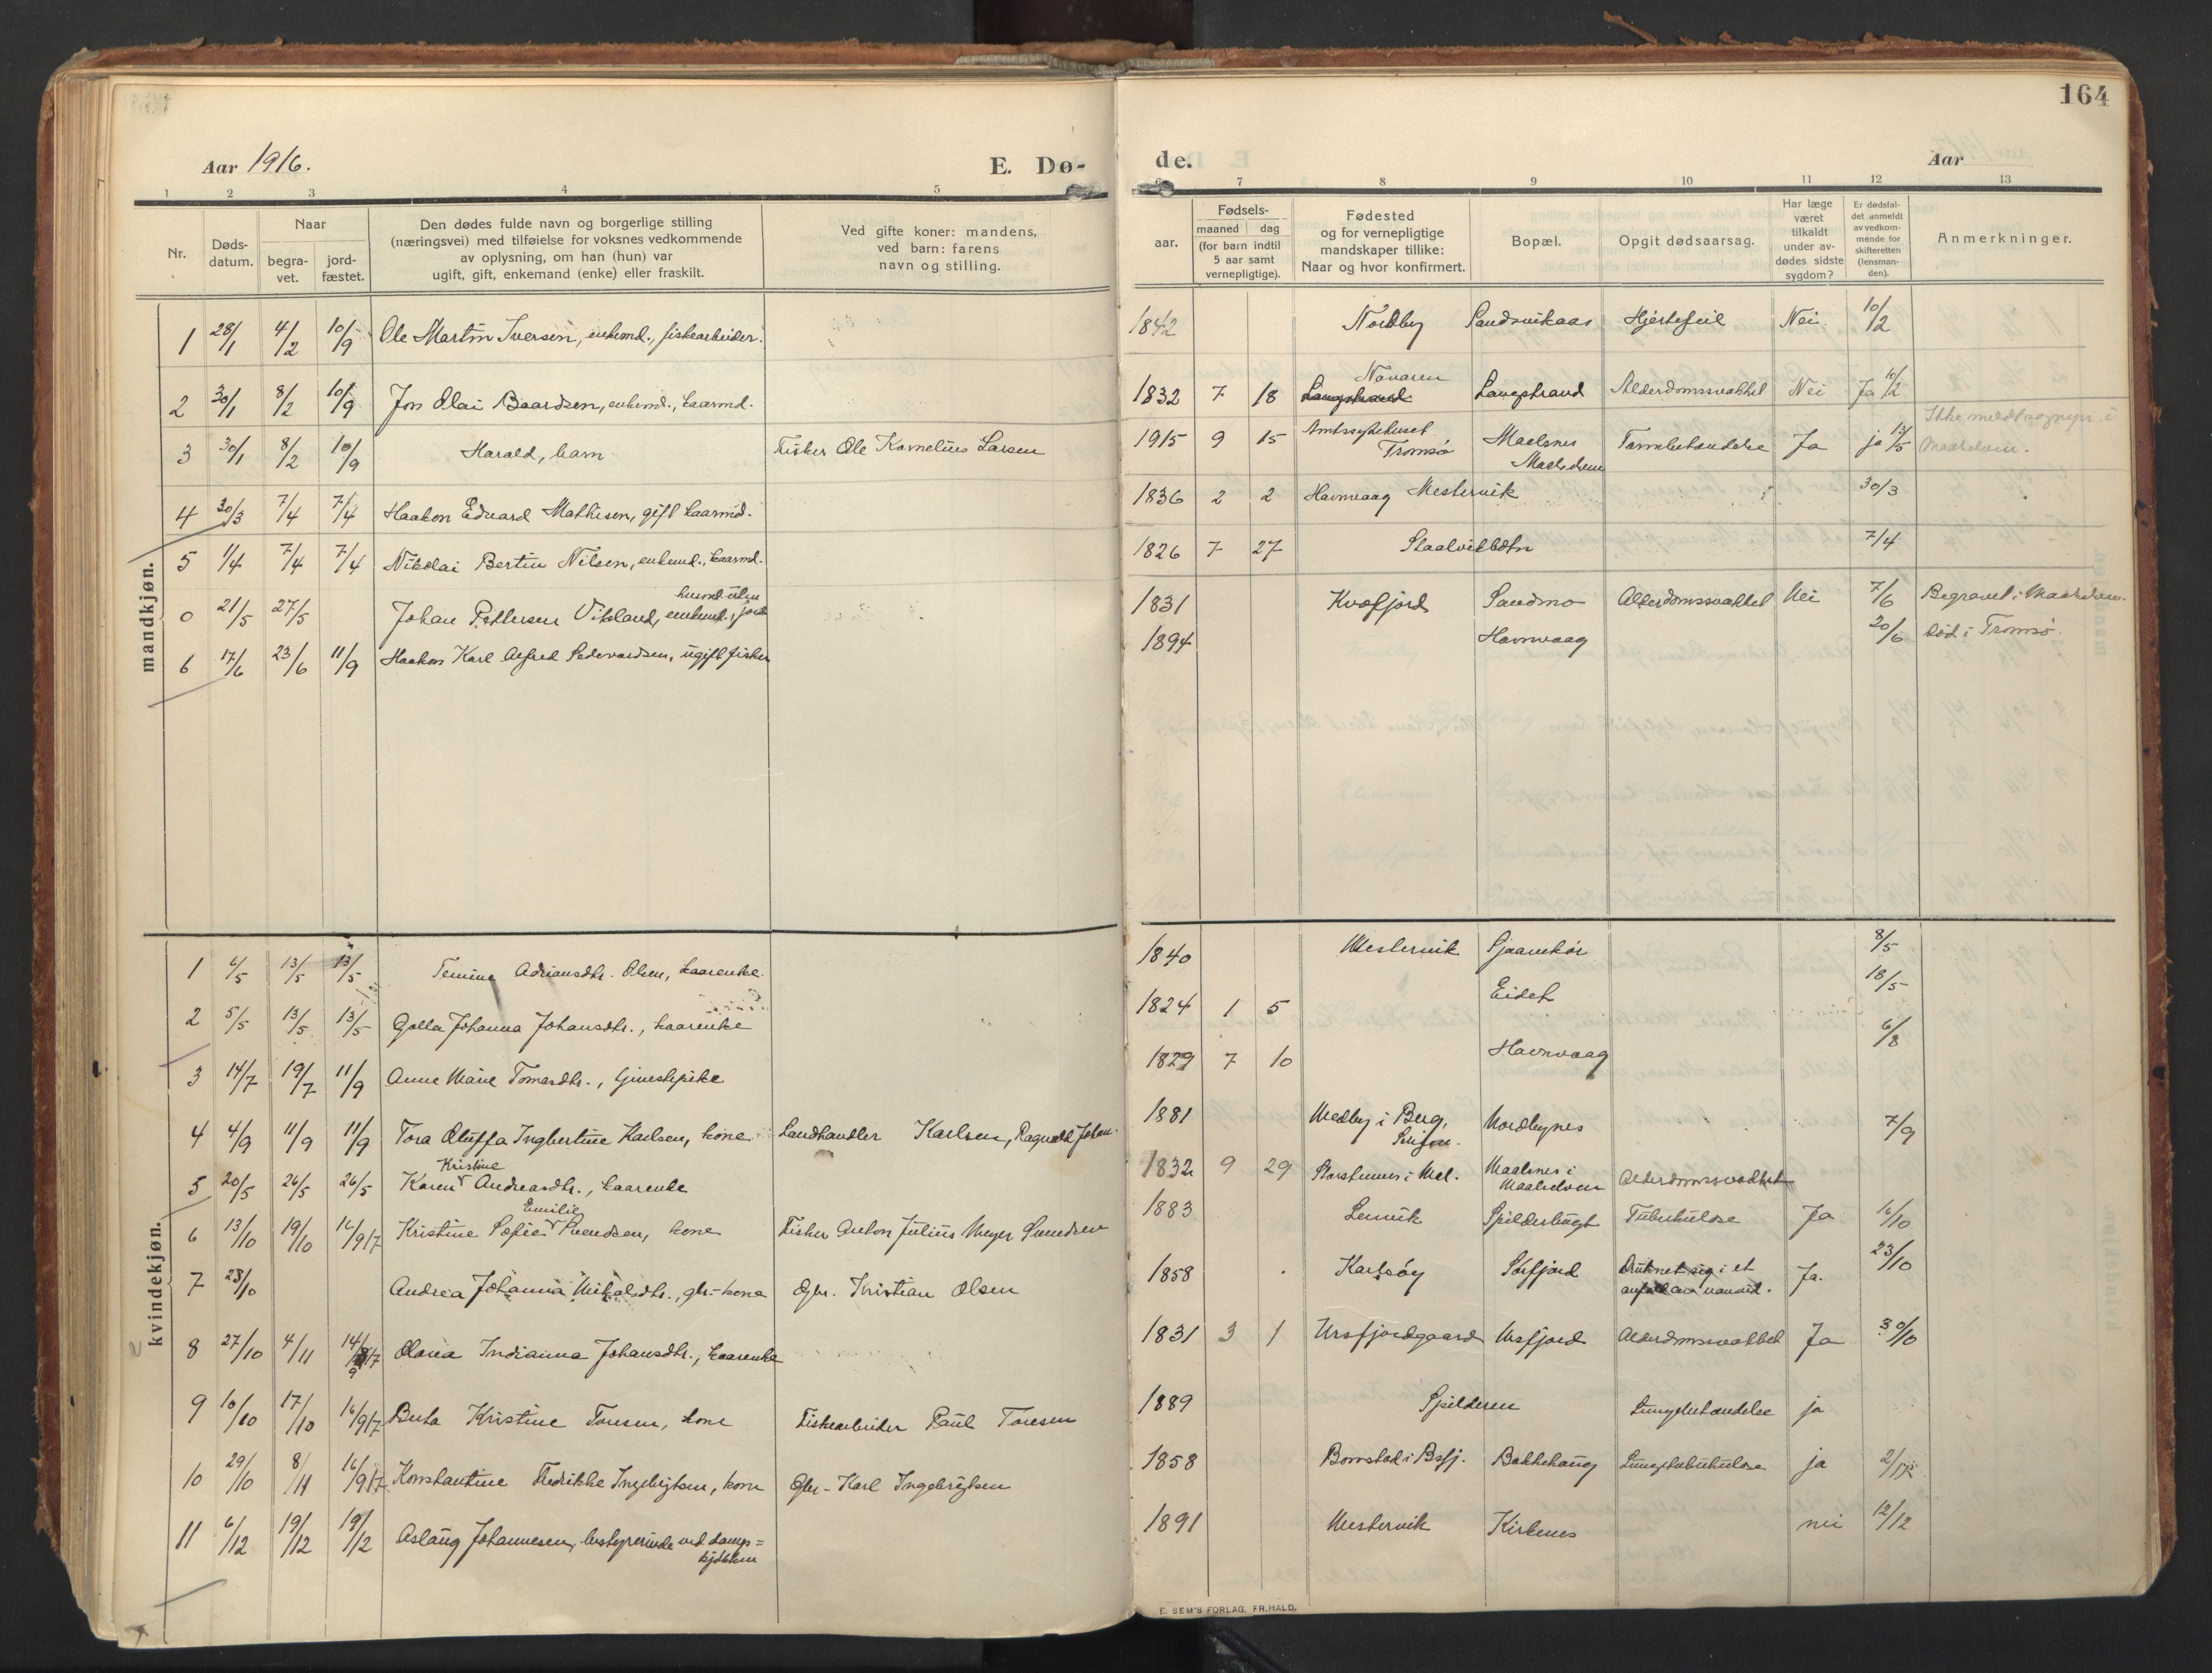 164
Aar 1916.
E. Dø-
de.
Aar
1 2 3 4 5
6 7 8 9 10 11 12 13
Nr.
Døds-
datum.
Naar
begra-
vet.
jord-
fæstet.
Den dødes fulde navn og borgerlige stilling
(næringsvei) med tilføielse for voksnes vedkommende
av oplysning, om han (hun) var
ugift, gift, enkemand (enke) eller fraskilt.
Ved gifte koner: mandens,
ved barn: farens
navn og stilling.
aar.
Fødsels-
maaned dag
(for barn indtil
5 aar samt
vernepligtige).
Fødested
og for vernepligtige
mandskaper tillike:
Naar og hvor konfirmert.
Bopæl.
Opgit dødsaarsag.
Har læge
været
tilkaldt
under av-
dødes sidste
sygdom?
Er dødsfal-
det anmeldt
av vedkom-
mende for
skifteretten
(lensman-
den).
Anmerkninger.
mandkjøn.
1 28/1 4/2 10/9 Ole Martin Iversen, enkemd., fiskearbeider. 1842 Nordby Sandvikaas Hjertefeil Nei. 10/2
2 30/1 8/2 10/9 Jon Olai Baardsen, enkemd., kaarmd. 1832 7 18 Langstrand Alderdomssvakhet Nei Ja 10/2
3 30/1 8/2 10/9 Harald, barn Fisker Ole Kornelius Larsen 1915 9 15 Amtssykehuset
Tromsø Maalsnes
Maalselven Tarmbetændelse Ja ja Ikke meldt sogнepr. i
Maalselven.
4 30/3 7/4 7/4 Haakon Edvard Mathisen, gift kaarmd. 1836 2 2 Havnvaag Mestervik 30/3
5 1/4 7/4 7/4 Nikolai Bertin Nilsen, enkemd., kaarmd. 1826 7 27 Staalvikbotn 7/4
0 21/5 27/5 Johan Pettersen Vikeland, enkemd., husmd. uten
jord 1831 Kvæfjord Sandmo Alderdomssvakhet Nei 7/6 Begravet i Maalselven.
6 17/6 23/6 11/9 Haakon Karl Alfred Sedevardsen, ugift fisker 1894 Havnvaag 20/6 Død i Tromsø.
kvindekjøn.
1 6/5 13/5 13/5 Adriansdtr. Olsen, kaarenke. 1840 Mestervik 8/5
2 5/5 13/5 13/5 Golla Johanna Johansdtr., kaarenke 1824 1 5 Eidet 18/5
3 14/7 19/7 11/9 Anne Marie Tomasdtr., tjenestepike 1829 7 10 Havnvaag 6/8
4 4/9 11/9 11/9 Tora Oluffa Ingbertine Karlsen, kone Landhandler Karlsen, Ragnvald Johan. 1881 Medby i Berg,
Senjen. Nordbynes 7/9
5 20/5 26/5 26/5 Karen Kristine Andreasdtr., kaarenke 1832 9 29 i Mal. Maalsnes i
Maalselven Alderdomssvakhet
6 13/10 19/10 16/9 17 Kristine Sofie Emilie Svendsen, kone Fisker Anton Julius Meyer Svendsen 1883 Lenvik Spilderbugt Tuberkulose Ja 16/10
7 23/10 Andrea Johanna Mikalsdtr., gbr.-kone Gbr. Kristian Olsen 1858 Karlsøy Sørfjord Druknet sig i et
anfald av vanvid. Ja. 23/10
8 27/10 4/11 Olava Indianna Johansdtr., kaarenke 1831 3 1 Ursfjordgaard Ursfjord Alderdomssvakhet Ja 30/10
9 10/10 17/10 16/9 17 Berta Kristine Toresen, kone Fiskearbeider Paul Toresen 1889 Spilderen Lungebetændelse ja
10 29/10 8/11 16/9 17 Konstantine Fredrikke Ingebrigtsen, kone Gbr. Karl Ingebrigtsen 1858 Bonstad i Bsfj. Bakkehaug Lungetuberkulose ja
11 6/12 19/12 19/12 Aslaug Johannesen, bestyrerinde ved damp=
kjøkken 1891 Mestervik Kirkenes nei 12/12
E. SEM'S FORLAG, FR.HALD.